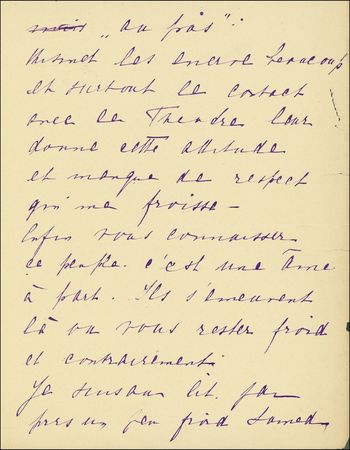 „au frais“:
les encore beaucoup
et surtout le contact
avec le Theadre leur
donne cette attitude
et manque de respect
qui me froisse —
Enfin vous connaissez
ce peuple. c'est une âme
à part. Ils s'émeuvent
là ou vous rester froid
et contrairement
Je suis au lit. j'ai
pris un peu froid Samed